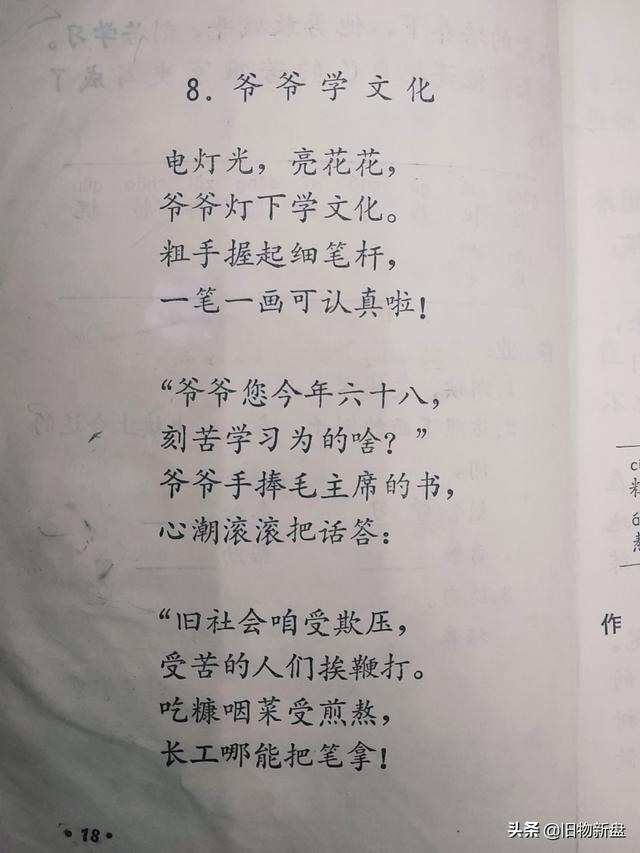 8. 爷爷学文化
电灯光，亮花花，
爷爷灯下学文化。
粗手握起细笔杆，
一笔一画可认真啦！
“爷爷您今年六十八，
刻苦学习为的啥？”
爷爷手捧毛主席的书，
心潮滚滚把话答：
“旧社会咱受欺压，
受苦的人们挨鞭打。
吃糠咽菜受煎熬，
长工哪能把笔拿！
·18·
作
头条 @旧物新盘